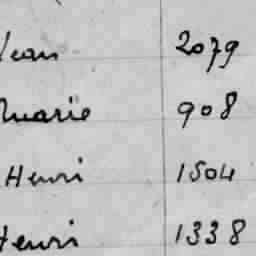 Jean 2079
Marie 908
Henri 1504
Henri 1338